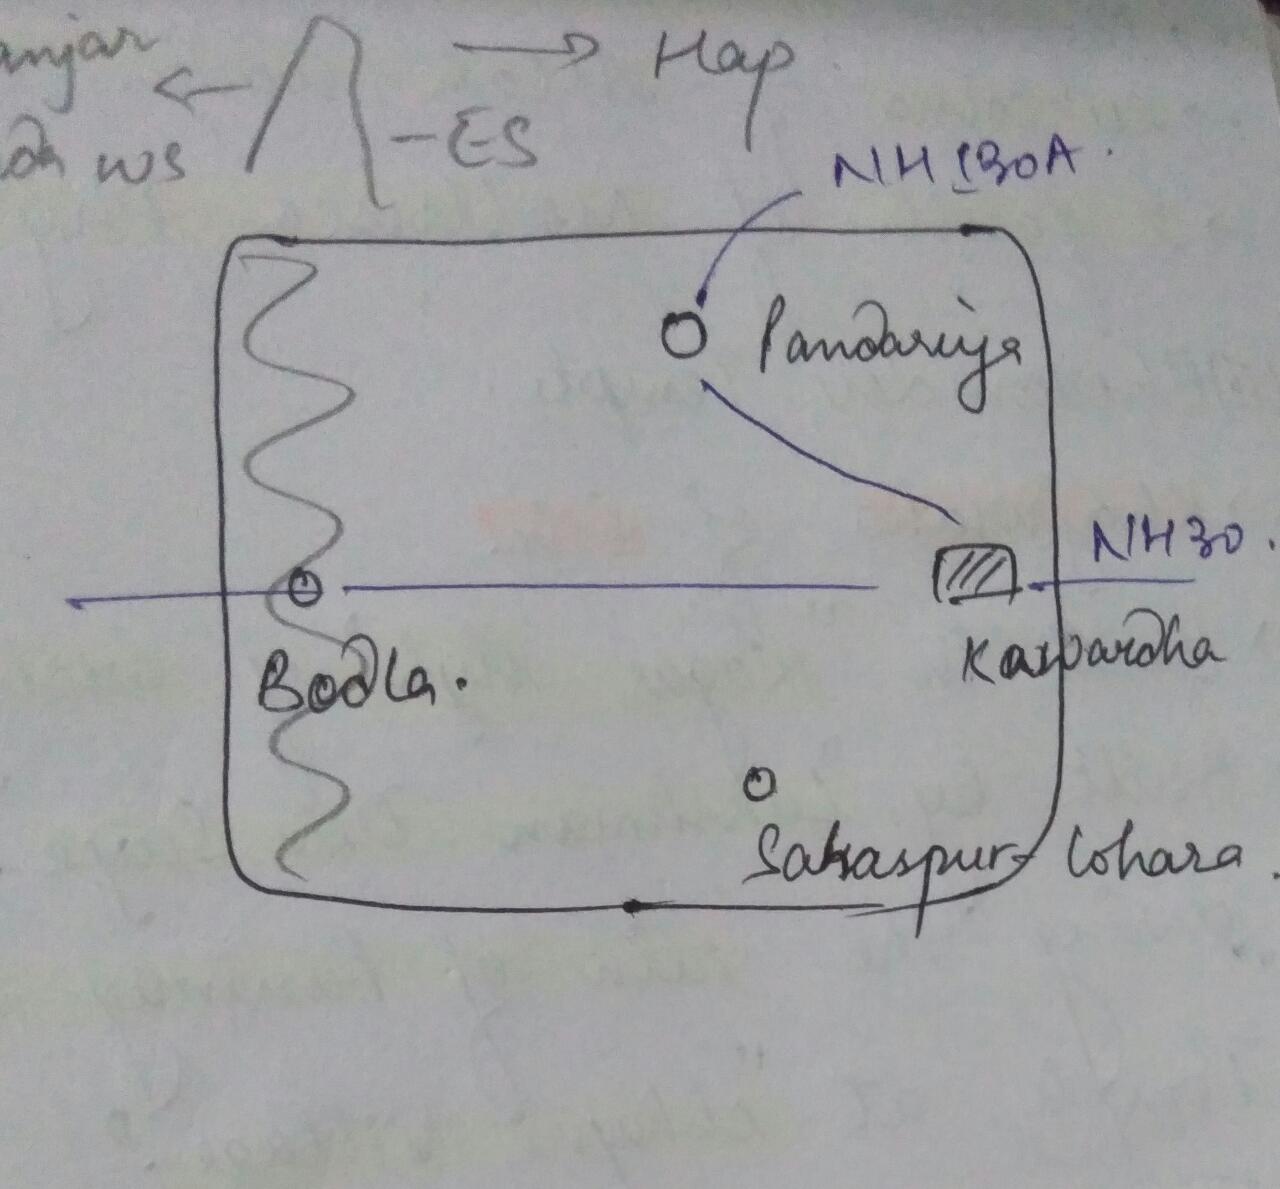 anjar
→ Hap
ws
- ES
NH 130A.
Pandariya
NH 30.
Kawardha
Bodla.
Sahaspur Lohara.